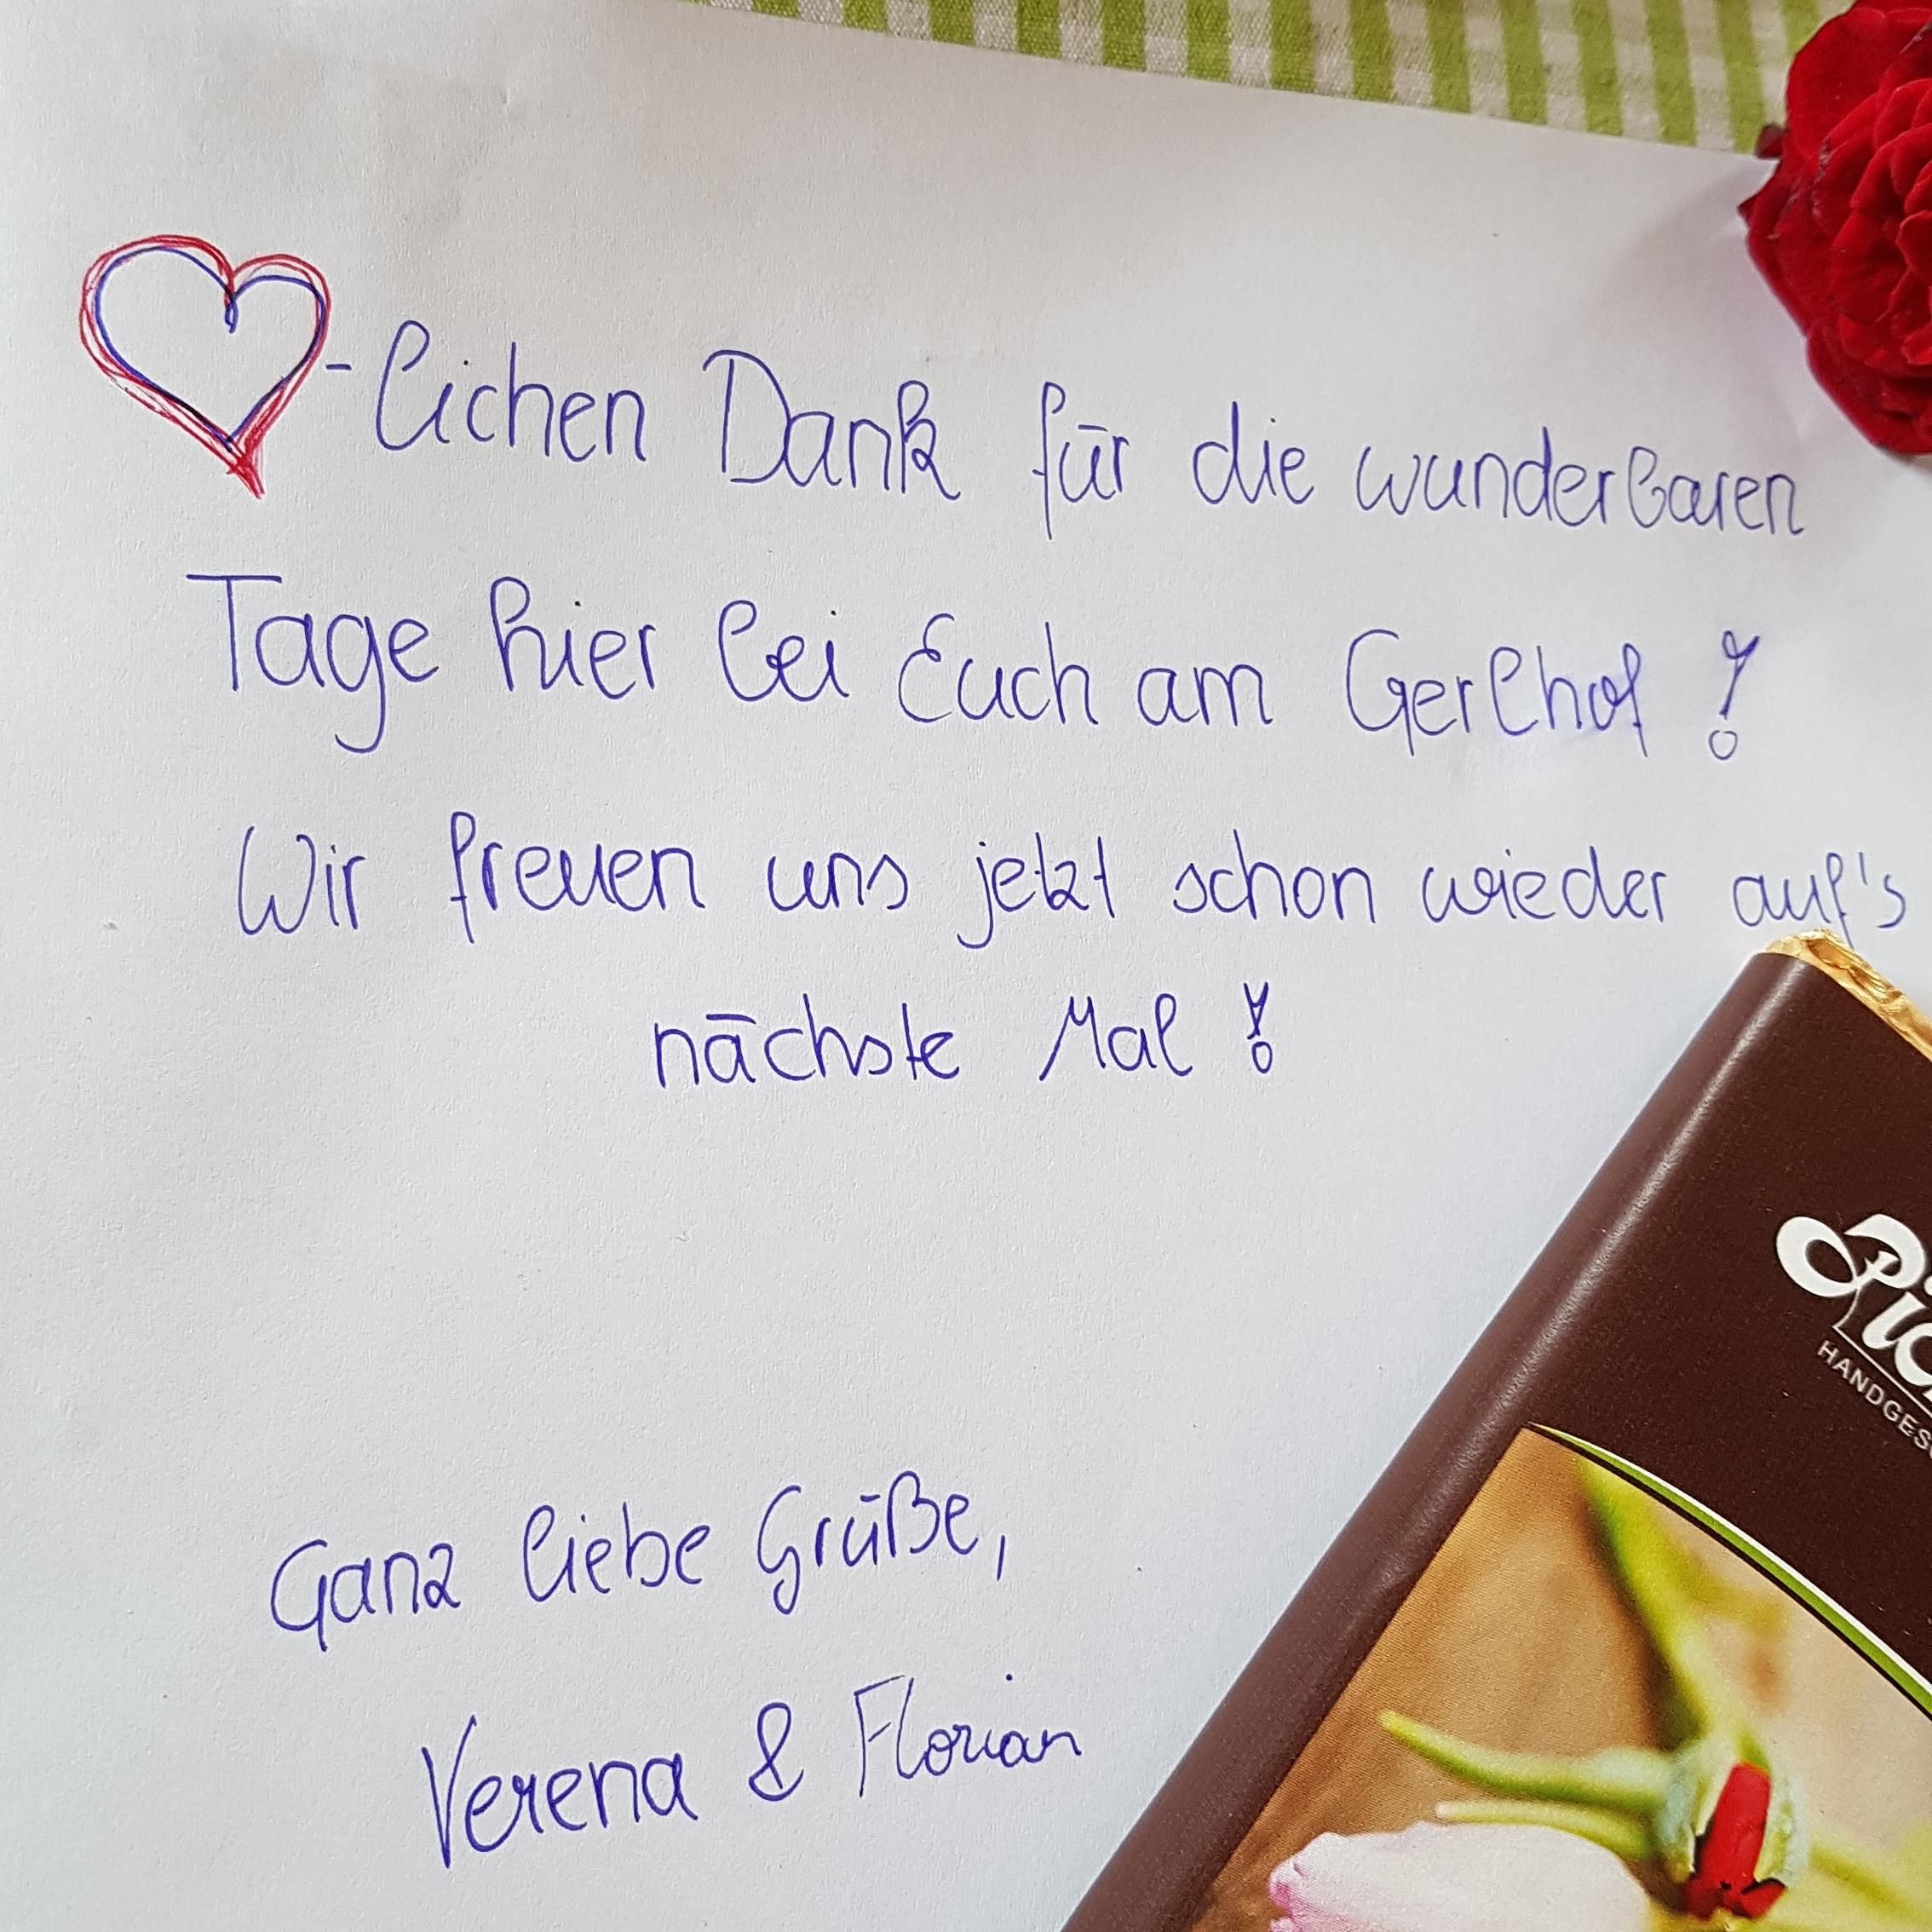 -lichen Dank für die wunderbaren
Tage hier bei Euch am Gerlhof !
Wir freuen uns jetzt schon wieder auf's
nächste Mal !
Ganz liebe Grüße,
Verena & Florian